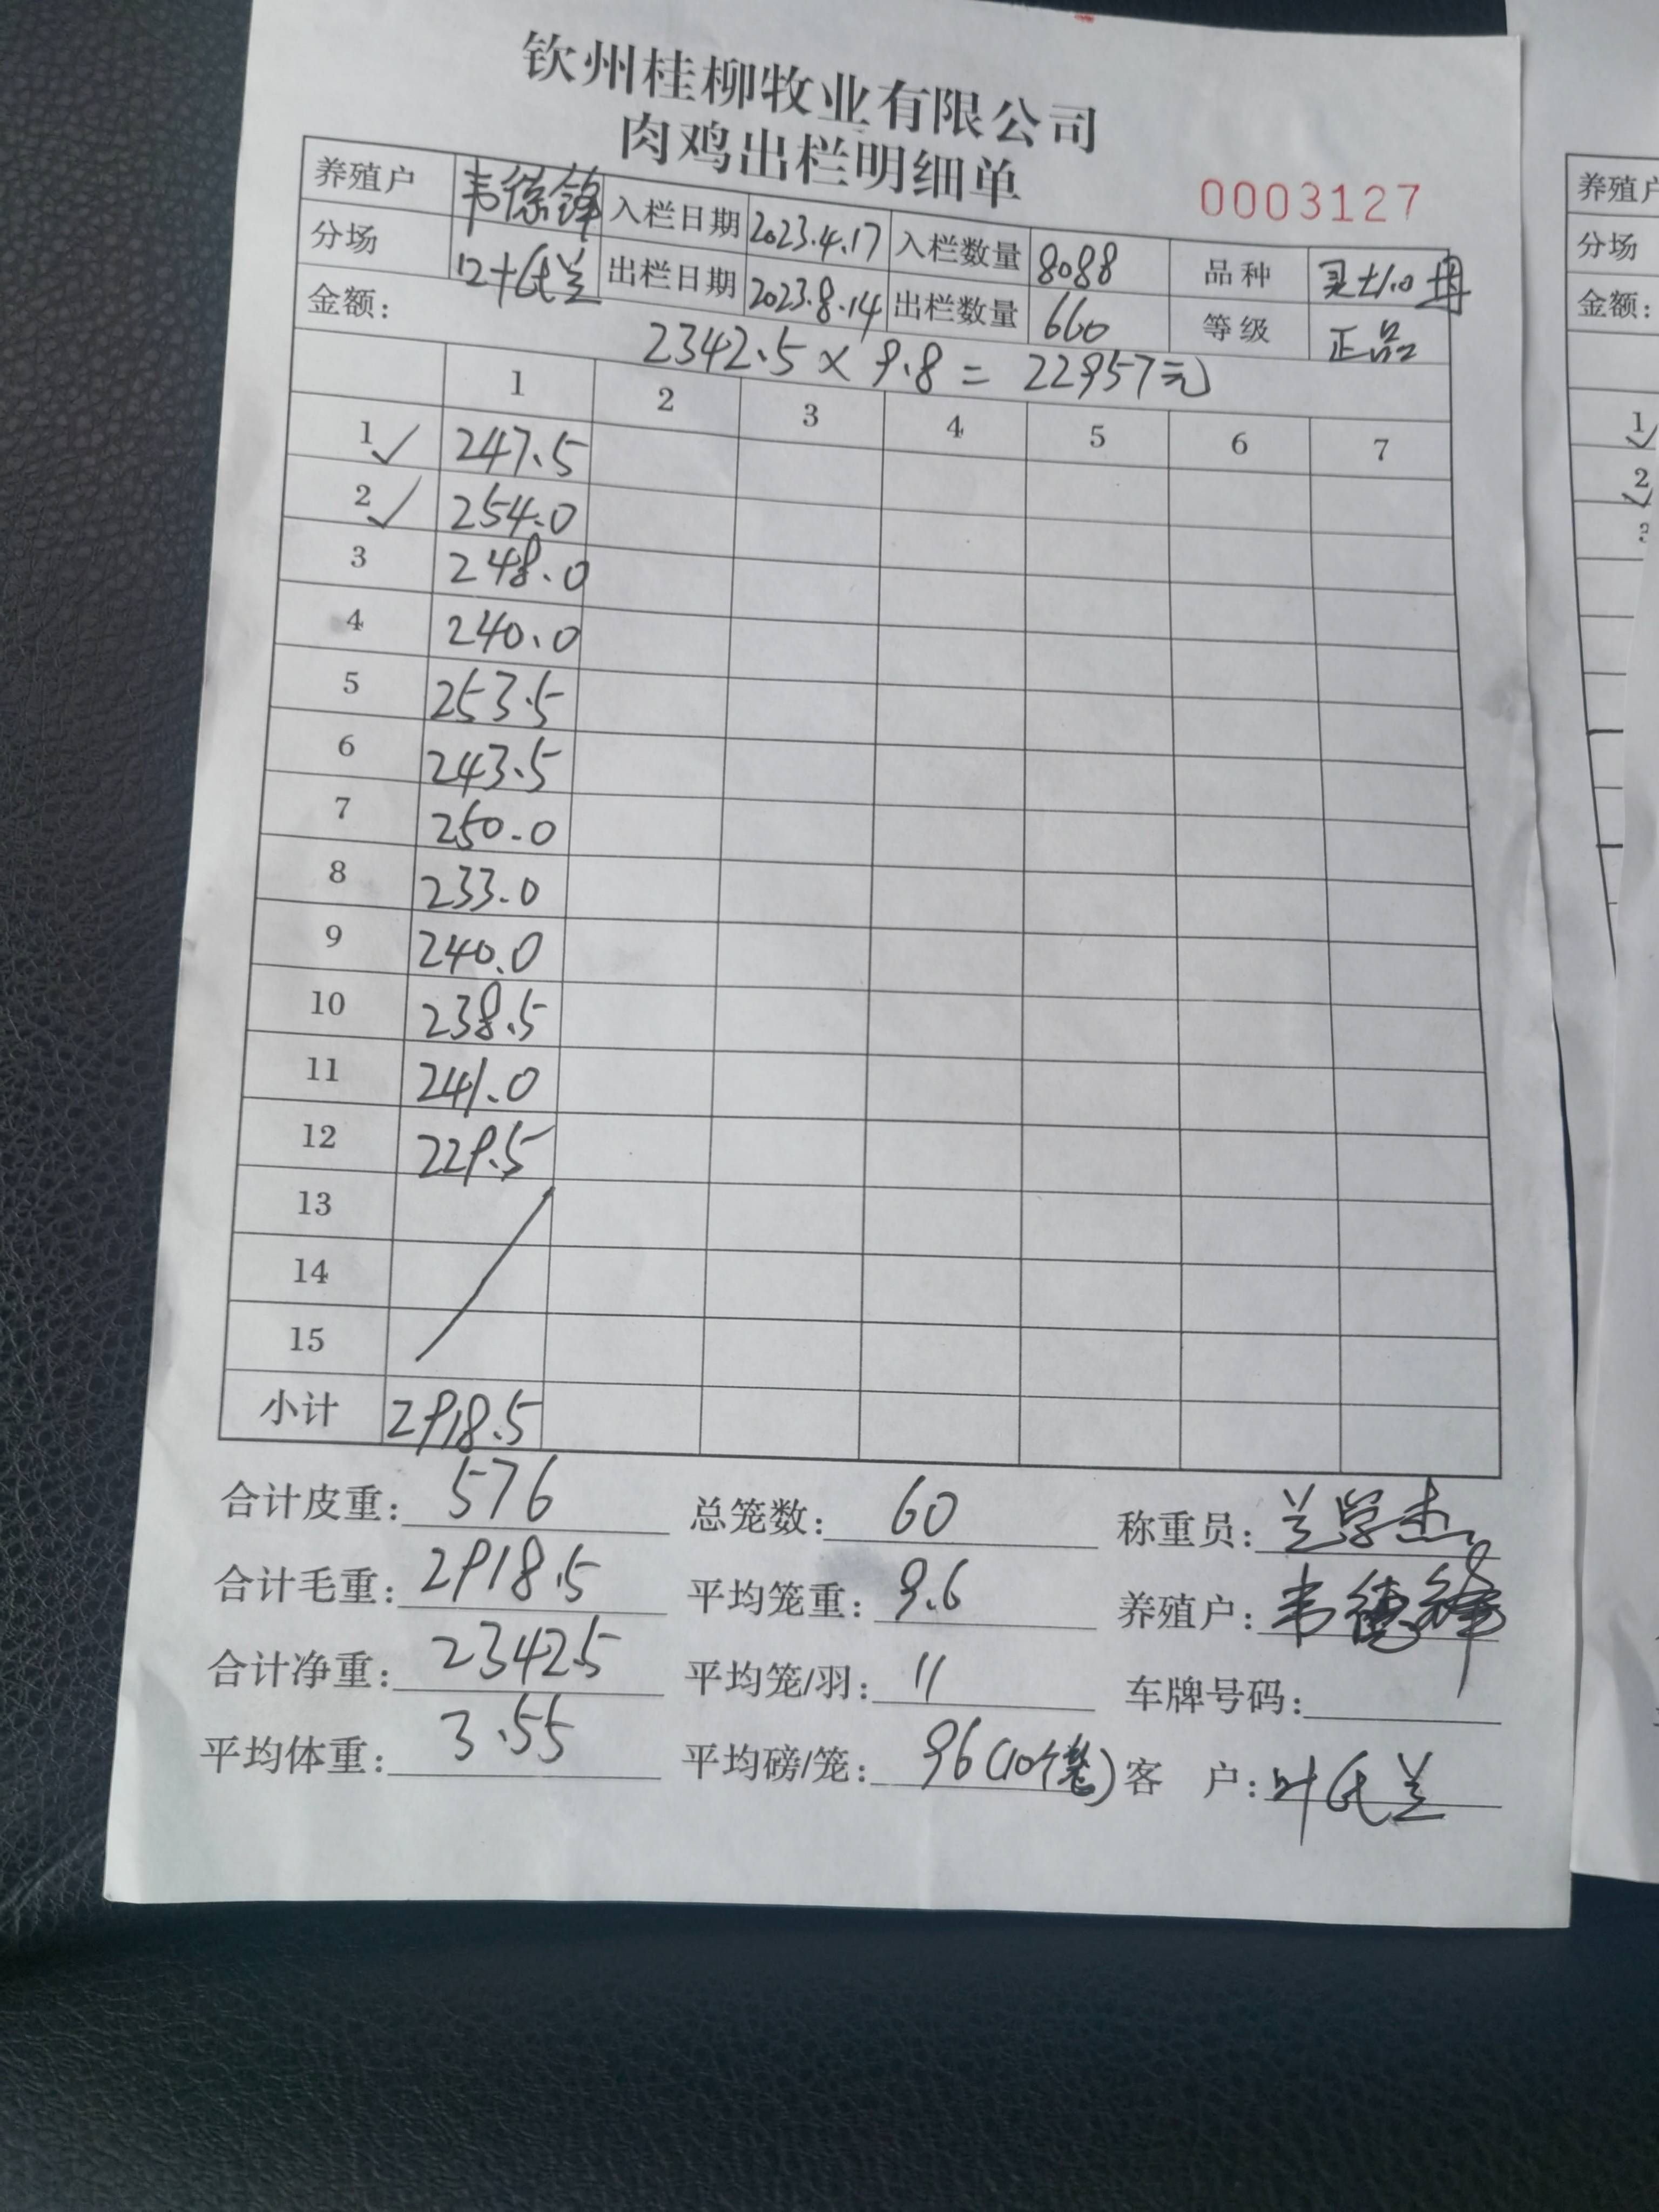 钦州桂柳牧业有限公司
肉鸡出栏明细单
0003127
养殖户 韦德锋 入栏日期 2023.4.17 入栏数量 8088 品种
分场 叶氏兰 出栏日期 2023.8.14 出栏数量 660 等级 正品
金额: 2342.5 × 9.8 = 22957元
1 2 3 4 5 6 7
1 ✓ 247.5
2 ✓ 254.0
3 248.0
4 240.0
5 253.5
6 243.5
7 250.0
8 233.0
9 240.0
10 238.5
11 241.0
12 229.5
13
14
15
小计 2918.5
合计皮重: 576 总笼数: 60 称重员: 兰学杰
合计毛重: 2918.5 平均笼重: 9.6 养殖户: 韦德锋
合计净重: 2342.5 平均笼/羽: 11 车牌号码:
平均体重: 3.55 平均磅/笼: 96(10个笼) 客 户: 叶氏兰
养殖户
分场
金额:
1 ✓
2 ✓
3